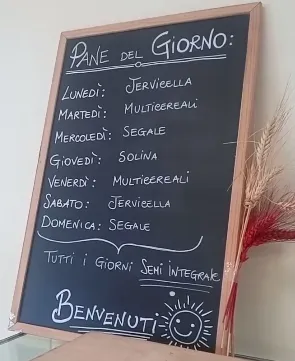 PANE DEL GIORNO:
LUNEDÌ: JERVICELLA
MARTEDÌ: MULTICEREALI
MERCOLEDÌ: SEGALE
GIOVEDÌ: SOLINA
VENERDÌ: MULTICEREALI
SABATO: JERVICELLA
DOMENICA: SEGALE
TUTTI I GIORNI SEMI INTEGRALE
BENVENUTI